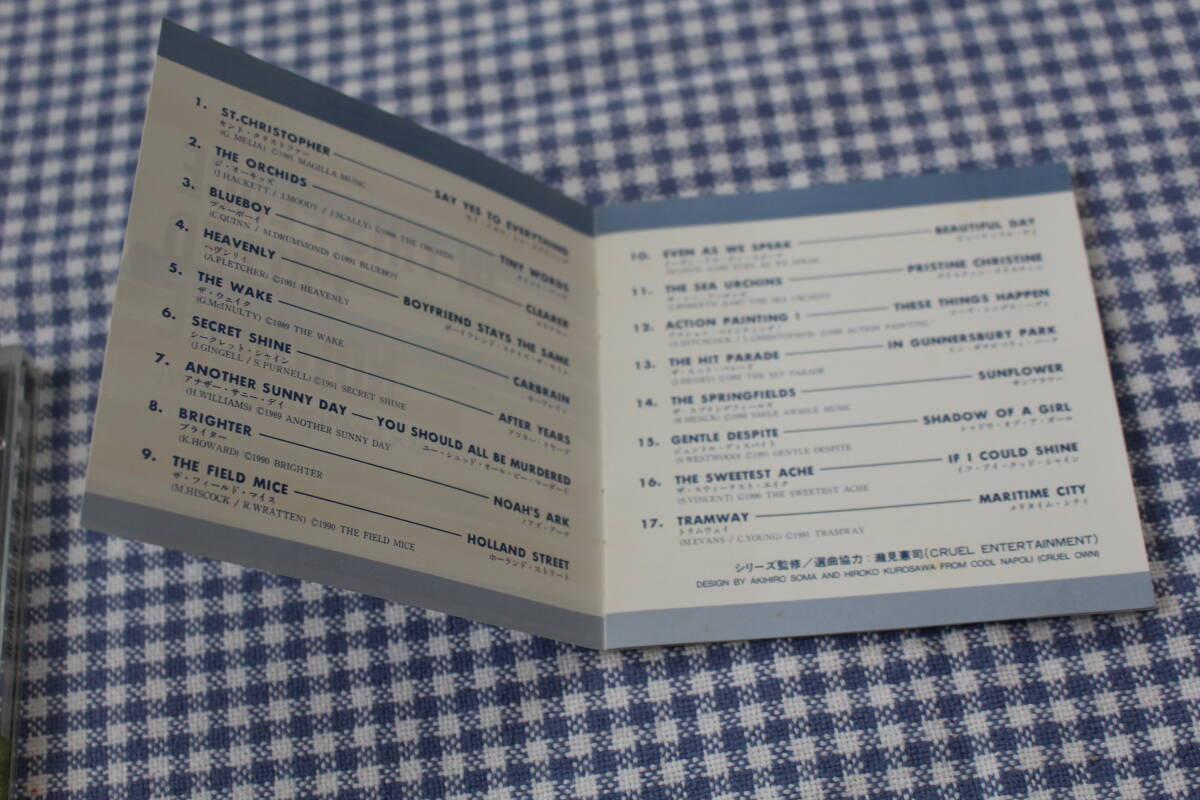 1. ST.CHRISTOPHER — SAY YES TO EVERYTHING
セント・クリストファー
(G. MELIA) ©1991 MAGILLA MUSIC
2. THE ORCHIDS — TINY WORDS
ジ・オーキッズ
(J.HACKETT / J.MOODY / J.SCALLY) ©1988 THE ORCHIDS
3. BLUEBOY — CLEARER
ブルーボーイ
(C.QUINN / M.DRUMMOND) ©1991 BLUEBOY
4. HEAVENLY — BOYFRIEND STAYS THE SAME
ヘヴンリィ ボーイフレンド・ステイズ・ザ・セイム
(A.FLETCHER) ©1991 HEAVENLY
5. THE WAKE — CARBRAIN
ザ・ウェイク カーブレイン
(G.McINULTY) ©1989 THE WAKE
6. SECRET SHINE — AFTER YEARS
シークレット・シャイン アフター・イヤーズ
(J.GINGELL / S.PURNELL) ©1991 SECRET SHINE
7. ANOTHER SUNNY DAY — YOU SHOULD ALL BE MURDERED
アナザー・サニー・デイ ユー・シュッド・オール・ビー・マーダード
(H.WILLIAMS) ©1989 ANOTHER SUNNY DAY
8. BRIGHTER — NOAH'S ARK
ブライター ノアズ・アーク
(K.HOWARD) ©1990 BRIGHTER
9. THE FIELD MICE — HOLLAND STREET
ザ・フィールド・マイス ホーランド・ストリート
(M.HISCOCK / R.WRATTEN) ©1990 THE FIELD MICE
10. EVEN AS WE SPEAK — BEAUTIFUL DAY
11. THE SEA URCHINS — PRISTINE CHRISTINE
12. ACTION PAINTING ! — THESE THINGS HAPPEN
13. THE HIT PARADE — IN GUNNERSBURY PARK
ザ・ヒット・パレード
(J.HENRY) THE HIT PARADE
14. THE SPRINGFIELDS — SUNFLOWER
ザ・スプリングフィールズ サンフラワー
15. GENTLE DESPITE — SHADOW OF A GIRL
ジェントル・ディスパイト シャドウ・オブ・ア・ガール
(S.WESTWOOD) ©1991 GENTLE DESPITE
16. THE SWEETEST ACHE — IF I COULD SHINE
ザ・スウィーテスト・エイク イフ・アイ・クッド・シャイン
(S.VINCENT) THE SWEETEST ACHE
17. TRAMWAY — MARITIME CITY
トラムウェイ メリタイム・シティ
(M.EVANS / C.YOUNG) ©1991 TRAMWAY
シリーズ監修／選曲協力：瀧見憲司(CRUEL ENTERTAINMENT)
DESIGN BY AKIHIRO SOMA AND HIROKO KUROSAWA FROM COOL NAPOLI (CRUEL OWN)